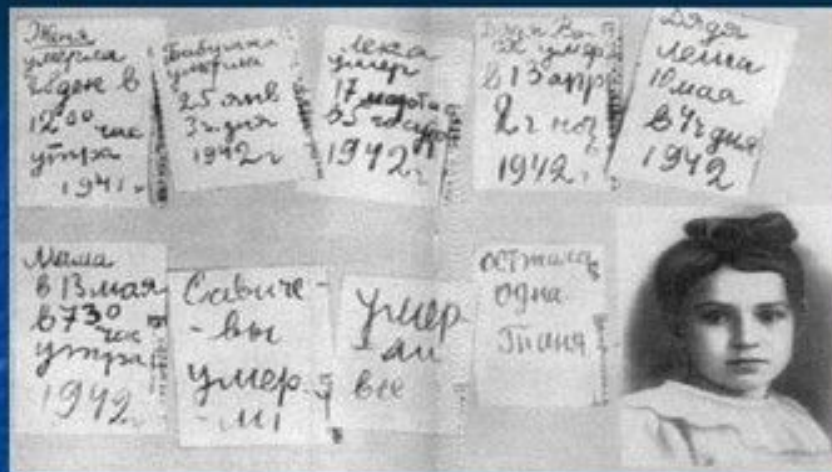 Женя
умерла
28 ден в
12 00 час
утра
1941 г
Бабушка
умерла
25 янв
3 ч. дня
1942 г
Лека
умер
17 марта
в 5 час утр
1942 г.
Дядя Ва
умер
в 13 апр
2 ч ноч
1942 г
Дядя
Леша
10 мая
в 4 ч дня
1942
Мама
в 13 мая
в 7 30
час
утра
1942 г
Савиче-
-вы
умер-
-ли
умер
-ли
все
осталась
одна
Таня